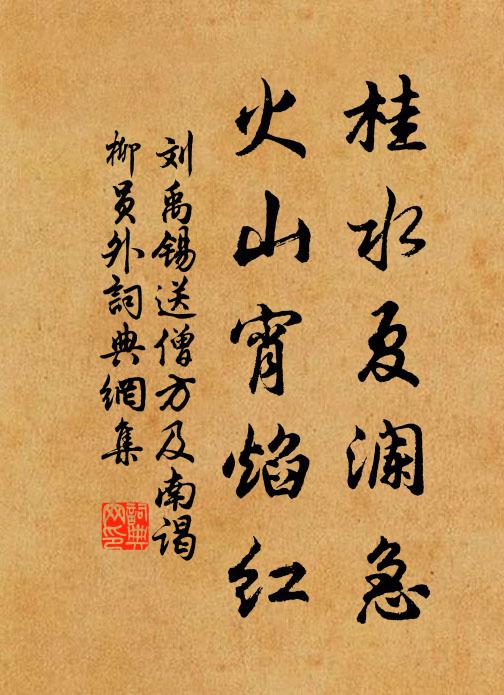 桂水夏澜急
火山宵焰红
刘禹锡送僧方及南谒
柳员外詞典網集
詞典
网印